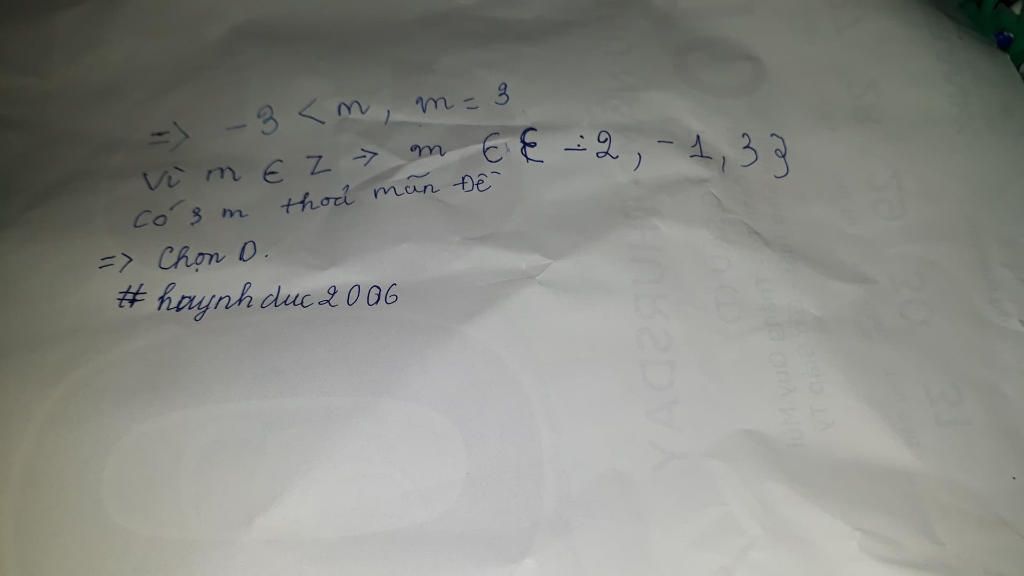 => -3 < m, m = 3
Vì m ∈ Z => m ∈ { -2, -1, 3}
Có 3 m thoả mãn đề
=> Chọn D.
# huynhduc2006
THURSDAY